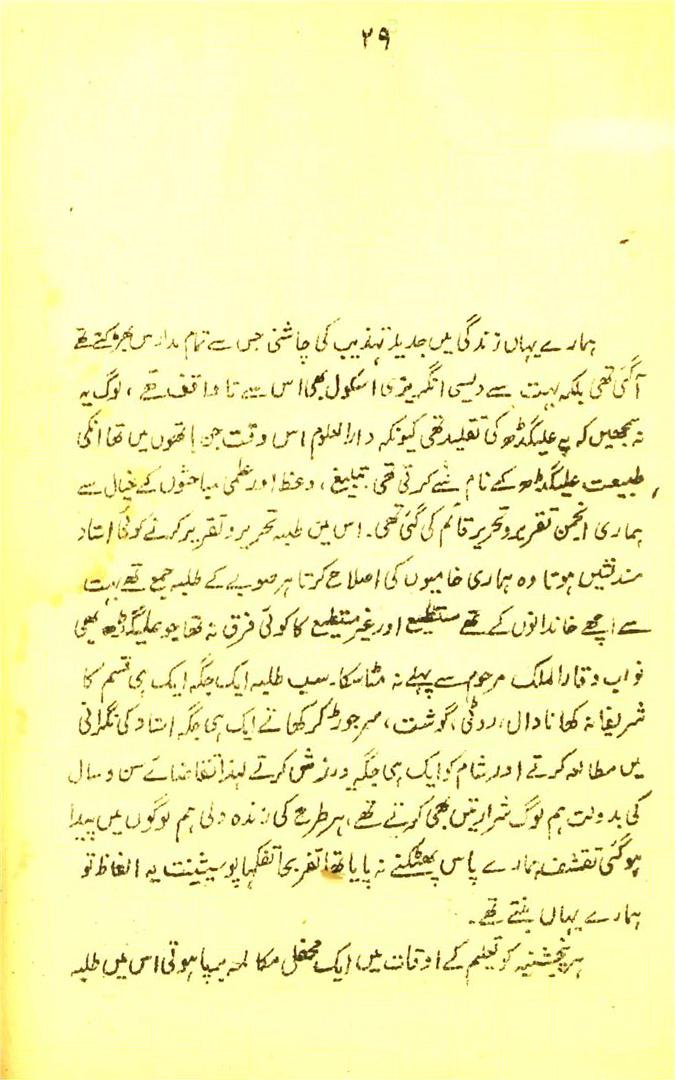 ۲۹
ہمارے یہاں زندگی میں جدید تہذیب کی چاشنی جس سے تمام مدارس بھڑکتے تھے
آگئی تھی بلکہ بہت سے دیسی انگریزی اسکول بھی اس سے نا واقف تھے، لوگ یہ
نہ سمجھیں کہ یہ علیگڈھ کی تقلید تھی کیونکہ دارالعلوم اس وقت جن ہاتھوں میں تھا انکی
طبیعت علیگڈھ کے نام سے کرتی تھی۔ تبلیغ، وعظ اور علمی مباحثوں کے خیال سے
ہماری انجمن تقریر و تحریر قائم کی گئی تھی۔ اس میں طلبہ تحریر و تقریر کرتے کوئی استاد
مسند نشیں ہوتا وہ ہماری خامیوں کی اصلاح کرتا ہر صوبے کے طلبہ جمع تھے بہت
سے اچھے خاندانوں کے تھے مستطیع اور غیر مستطیع کا کوئی فرق نہ تھا جو علیگڈھ بھی
نواب وقار الملک مرحوم سے پہلے نہ مٹا سکا۔ سب طلبہ ایک جگہ ایک ہی قسم کا
شریفانہ کھانا دال، روٹی، گوشت، سر جوڑ کر کھاتے ایک ہی جگہ استاد کی نگرانی
میں مطالعہ کرتے اور شام کو ایک ہی جگہ ورزش کرتے لہٰذا تقاضائے سن و سال
کی بدولت ہم لوگ شرارتیں بھی کرتے تھے، ہر طرح کی زندہ دلی ہم لوگوں میں پیدا
ہو گئی تقشف ہمارے پاس پھٹکنے نہ پایا تھا تفریحاً تفکہا یہ الفاظ تو
ہمارے یہاں بنتے تھے۔
ہر پنجشنبہ کو تعلیم کے اوقات میں ایک محفل مکالمہ بپا ہوتی اس میں طلبہ